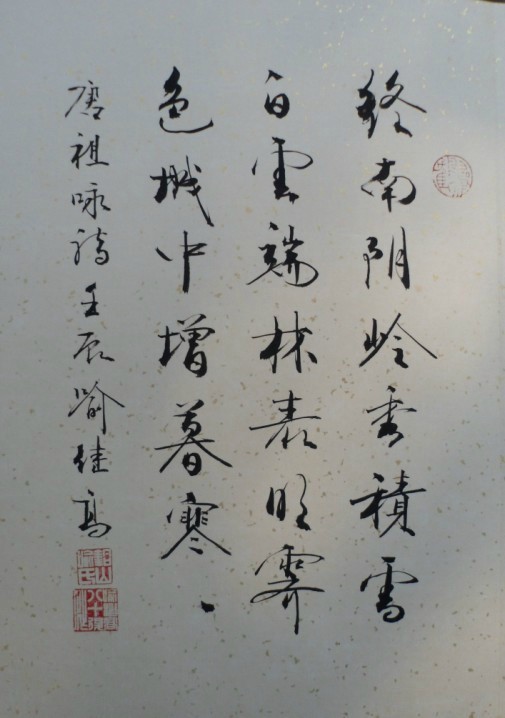 終南阴岭秀積雪
白雲端林表明霽
色城中增暮寒
唐祖咏詩壬辰喻继高